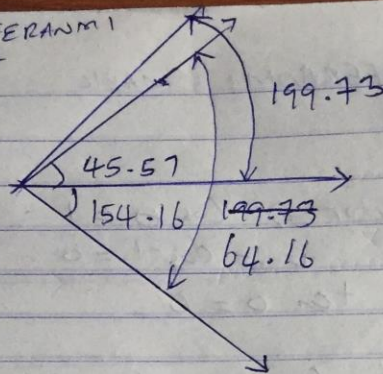 ERANMI
199.73
45.57
154.16 199.73
64.16